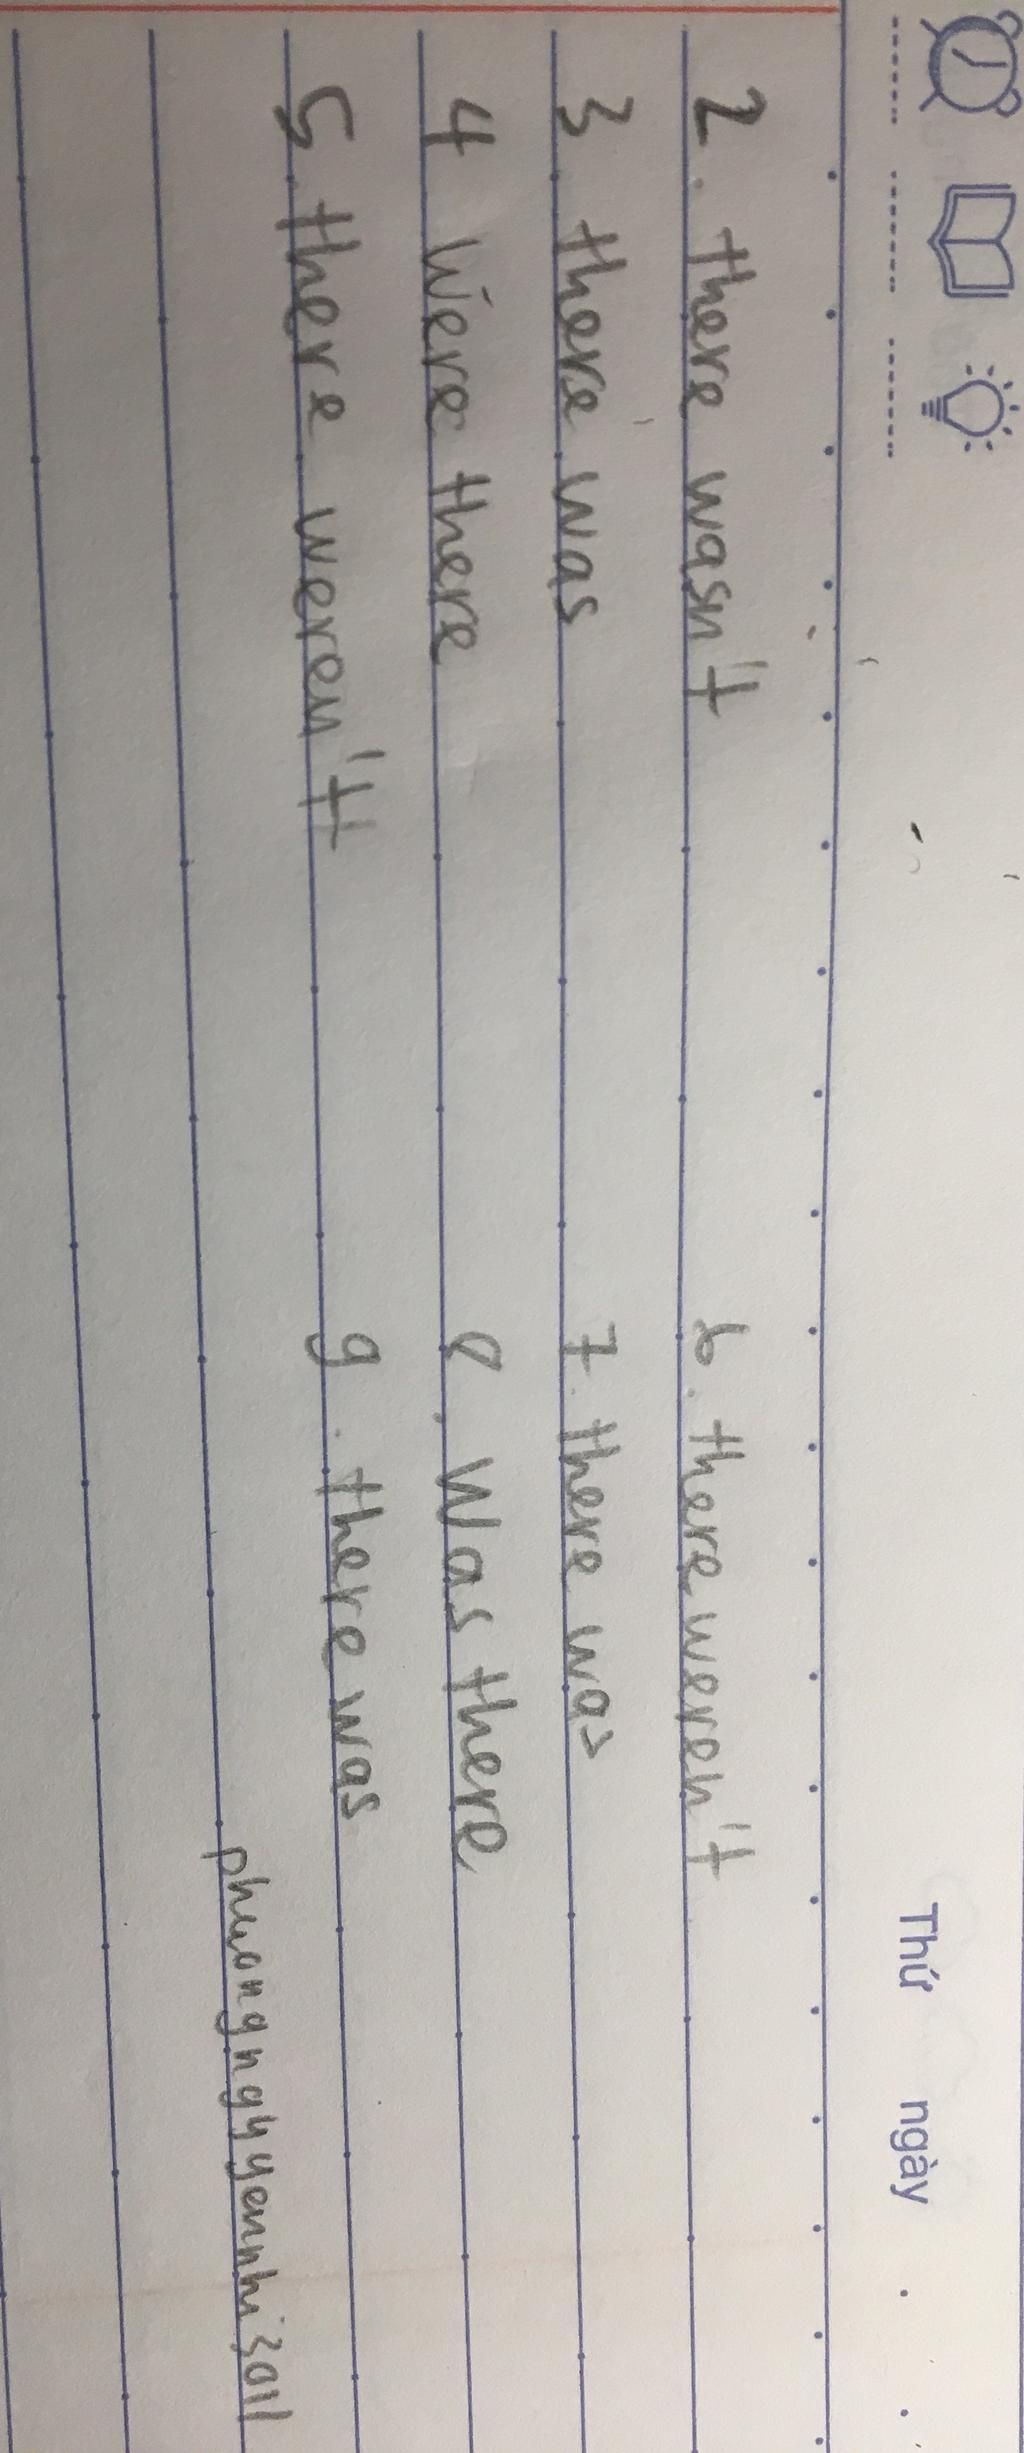 Thứ ngày . .
2. there wasn't
3. there was
4 Were there
5. there weren't
6. there weren't
7. there was
8. Was there
9. there was
phuongngyyennhi3011